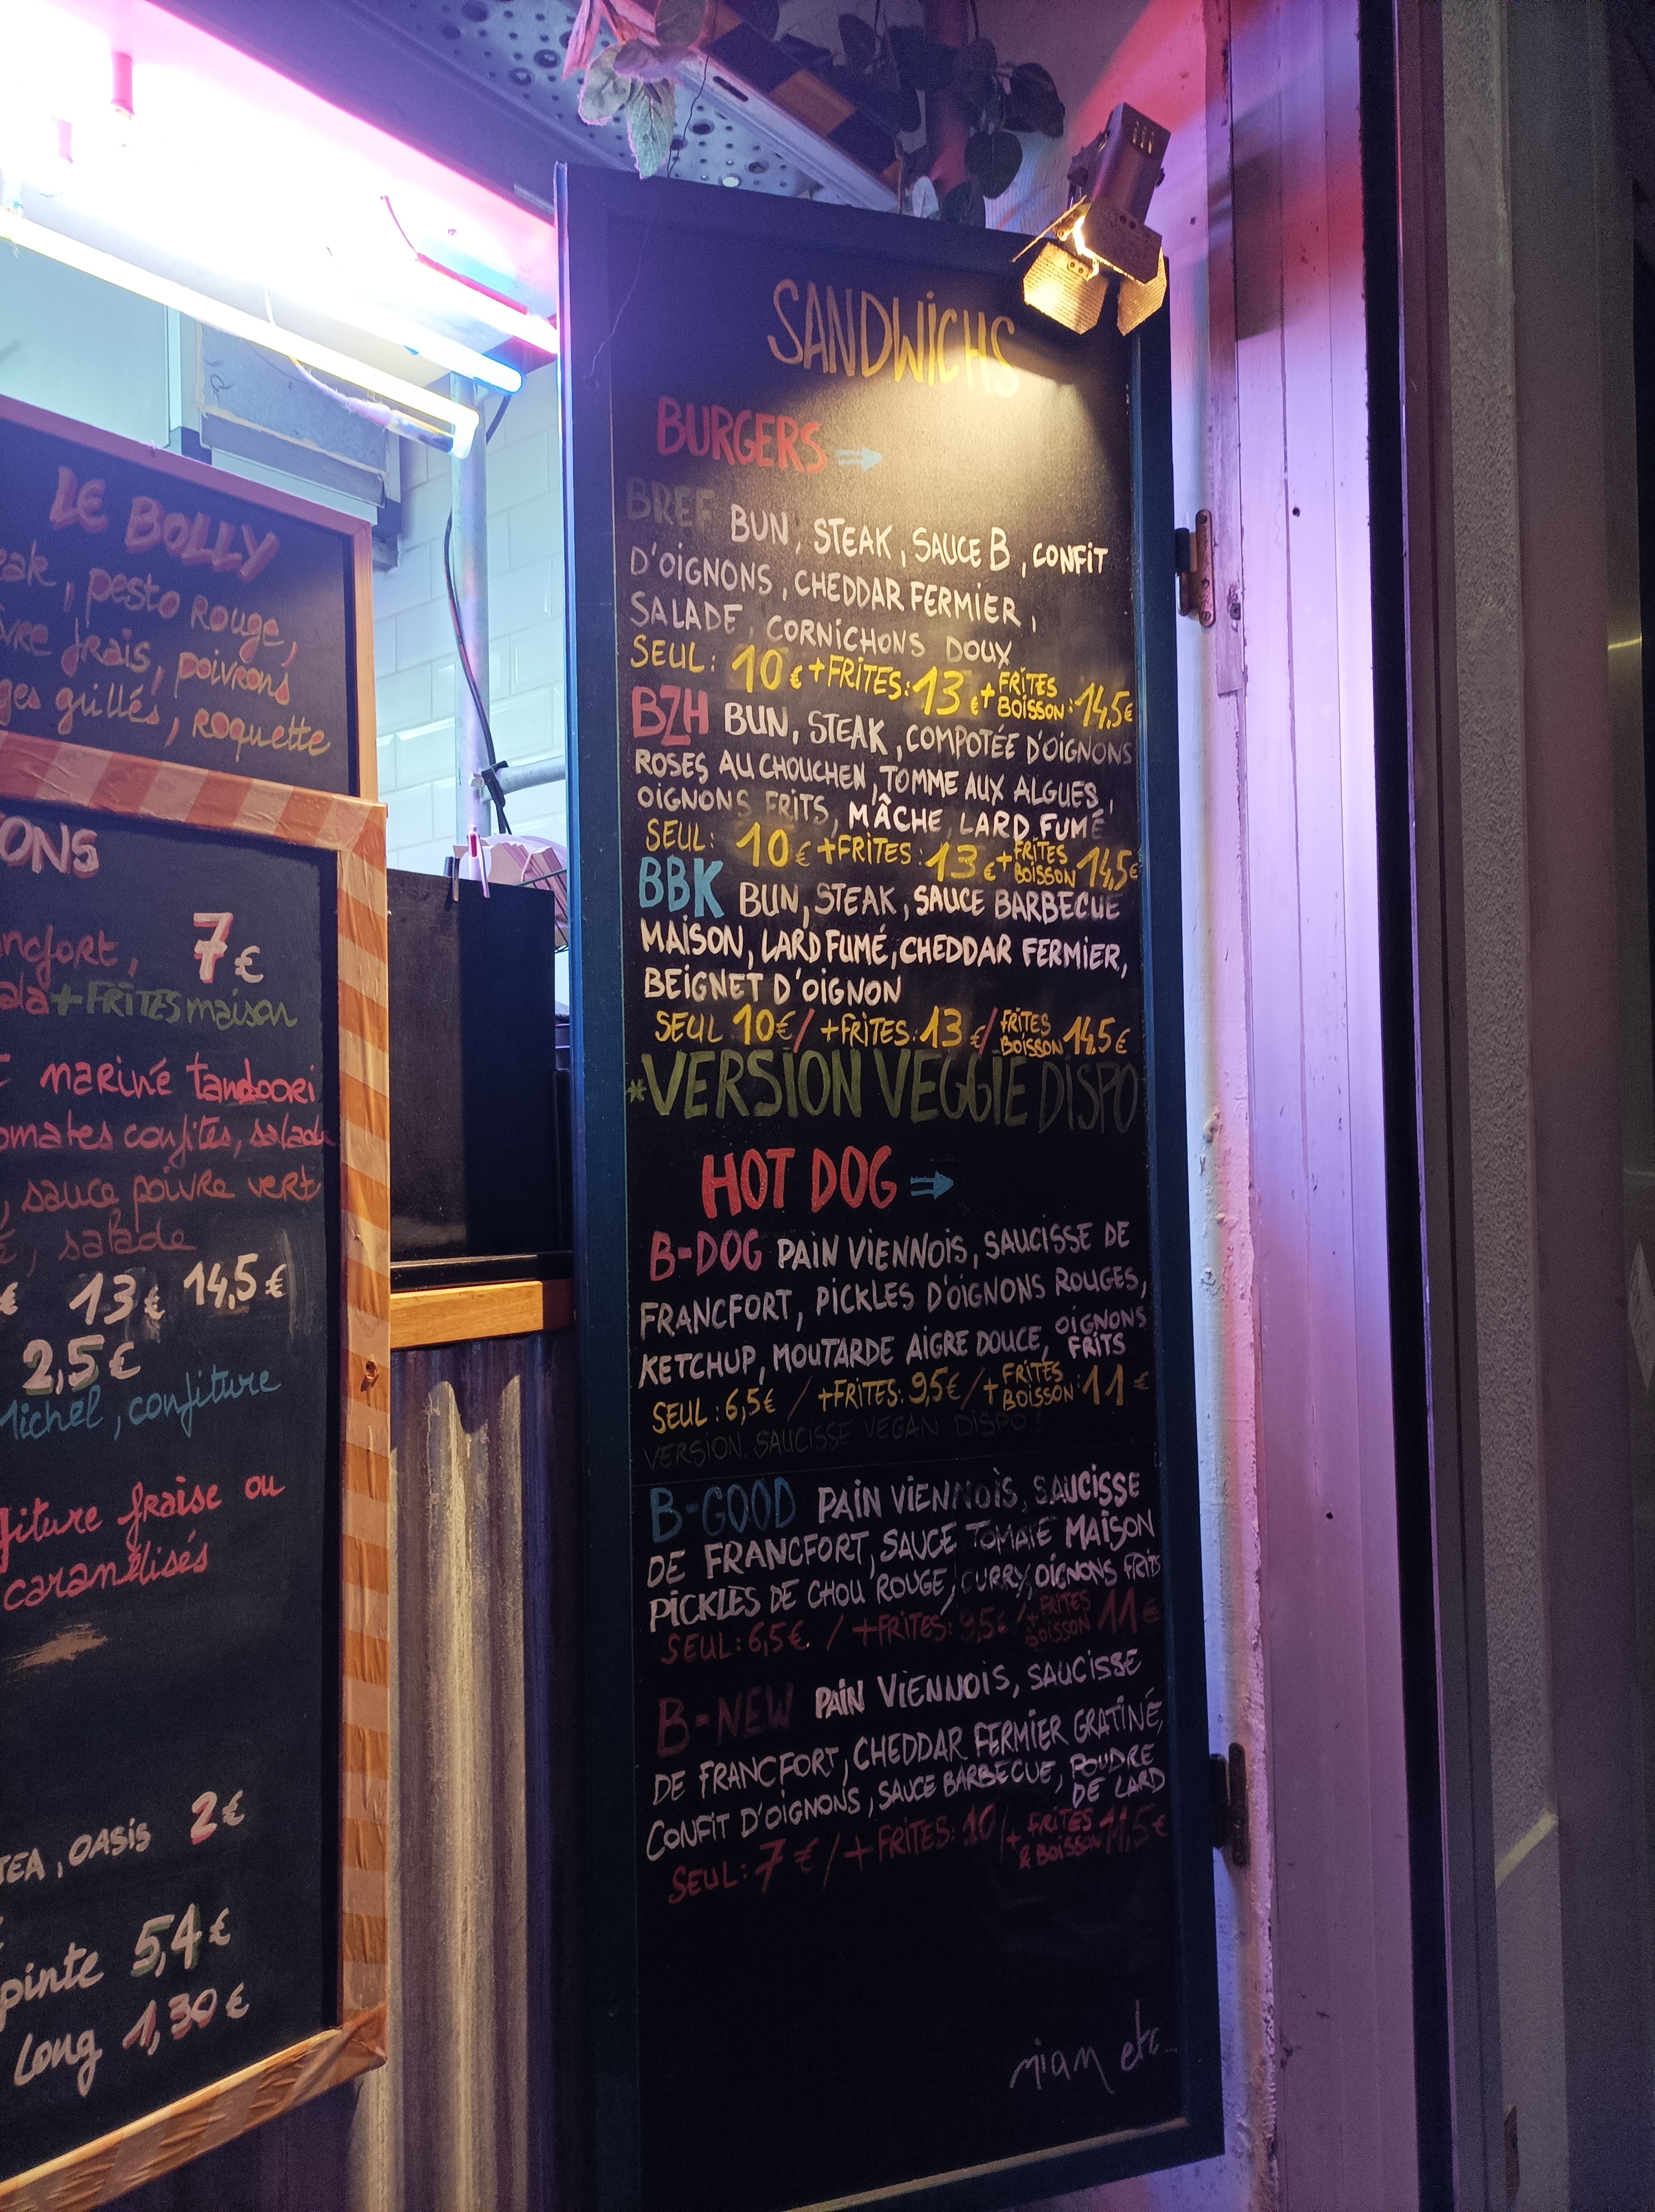 LE BOLLY
, pesto rouge,
frais, poivrons
grillés, roquette
7€
+ FRITES maison
mariné tandoori
confites, salade
, sauce poivre vert
, salade
€ 13€ 14,5€
2,5€
Michel, confiture
fraise ou
caramélisés
, OASIS 2€
pinte 5,4€
Long 1,30€
SANDWICHS
BURGERS ⇒
BREF BUN, STEAK, SAUCE B, CONFIT
D'OIGNONS, CHEDDAR FERMIER,
SALADE, CORNICHONS DOUX
SEUL: 10€ + FRITES: 13€ + FRITES BOISSON: 14,5€
BZH BUN, STEAK, COMPOTÉE D'OIGNONS
ROSES AU CHOUCHEN, TOMME AUX ALGUES,
OIGNONS FRITS, MÂCHE, LARD FUMÉ
SEUL: 10€ + FRITES: 13€ + FRITES BOISSON 14,5€
BBK BUN, STEAK, SAUCE BARBECUE
MAISON, LARD FUMÉ, CHEDDAR FERMIER,
BEIGNET D'OIGNON
SEUL 10€ / + FRITES: 13€ / FRITES BOISSON 14,5€
*VERSION VEGGIE DISPO
HOT DOG ⇒
B-DOG PAIN VIENNOIS, SAUCISSE DE
FRANCFORT, PICKLES D'OIGNONS ROUGES,
KETCHUP, MOUTARDE AIGRE DOUCE, OIGNONS FRITS
SEUL: 6,5€ / + FRITES: 9,5€ / + FRITES BOISSON: 11€
VERSION SAUCISSE VEGAN DISPO!
B-GOOD PAIN VIENNOIS, SAUCISSE
DE FRANCFORT, SAUCE TOMATE MAISON
PICKLES DE CHOU ROUGE, CURRY, OIGNONS FRITS
SEUL: 6,5€ / + FRITES: 9,5€ / + FRITES BOISSON 11€
B-NEW PAIN VIENNOIS, SAUCISSE
DE FRANCFORT, CHEDDAR FERMIER GRATINÉ,
CONFIT D'OIGNONS, SAUCE BARBECUE, POUDRE DE LARD
SEUL: 7€ / + FRITES: 10 / + FRITES & BOISSON 11,5€
miam etc.